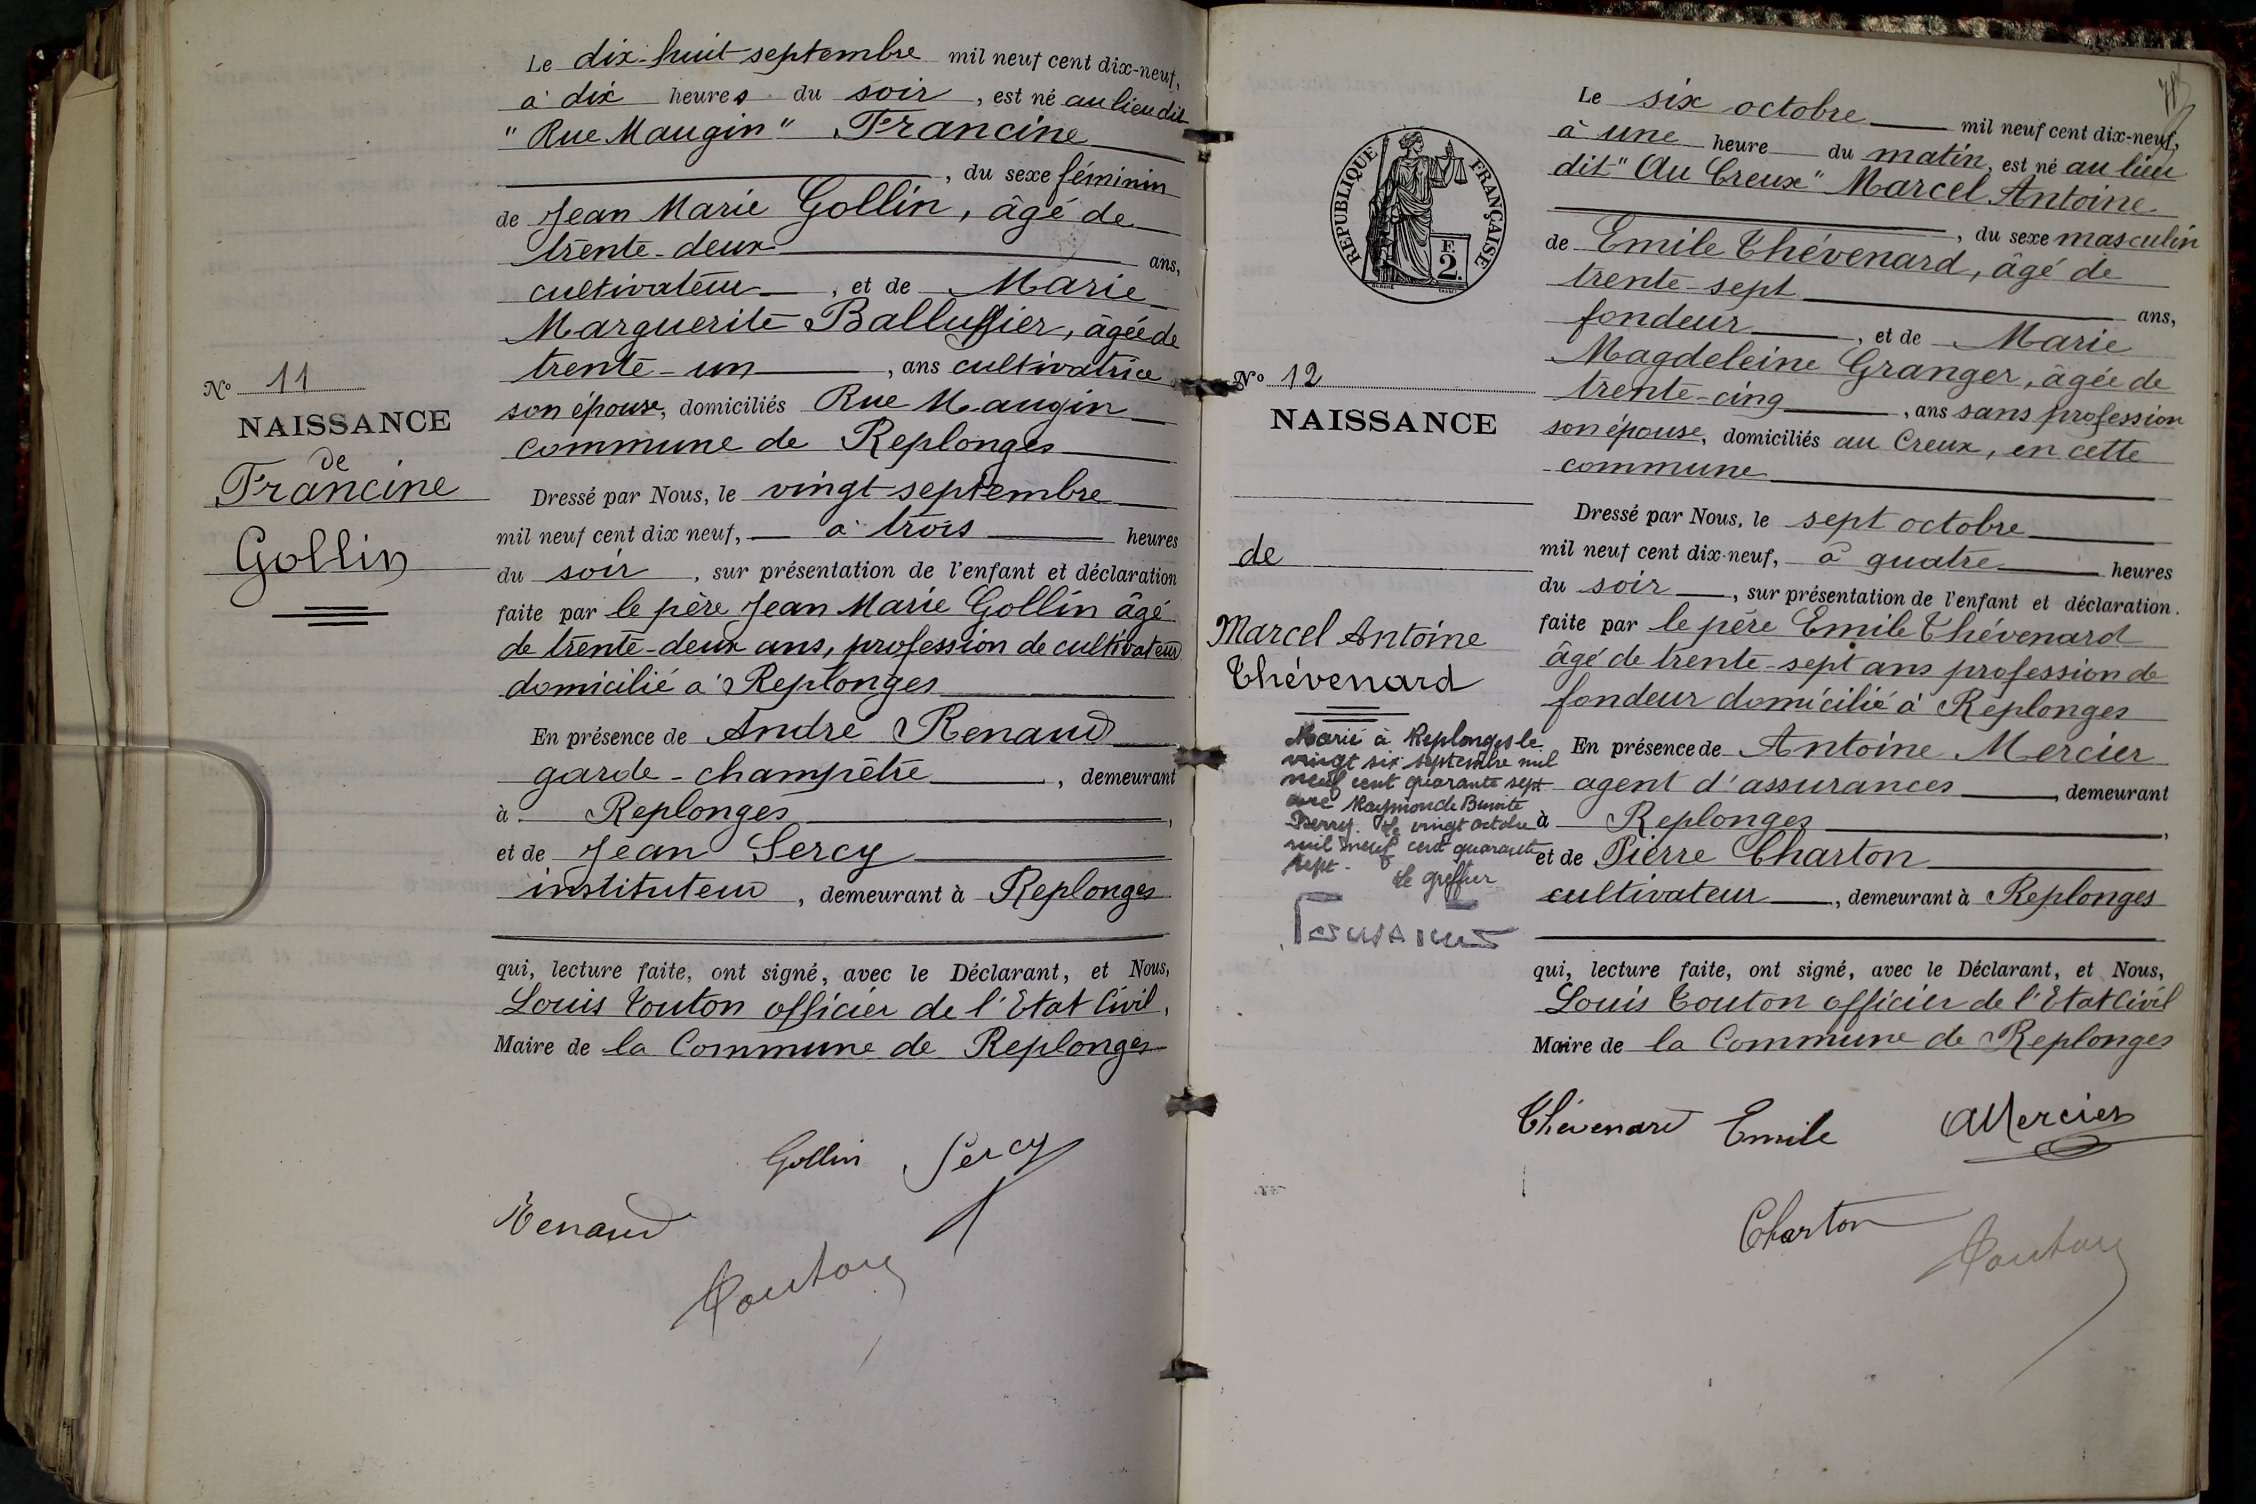 Le dix-huit septembre mil neuf cent dix-neuf,
à dix heures du soir, est né au lieu dit
"Rue Maugin" Francine
, du sexe féminin
de Jean Marie Gollin, âgé de
trente-deux ans,
cultivateur, et de Marie
Marguerite Balluffier, âgée de
trente-un, ans cultivatrice
son épouse, domiciliés Rue Maugin
commune de Replonges
No 11
NAISSANCE
de
Francine
Gollin
Dressé par Nous, le vingt septembre
mil neuf cent dix neuf, à trois heures
du soir, sur présentation de l'enfant et déclaration
faite par le père Jean Marie Gollin âgé
de trente-deux ans, profession de cultivateur
domicilié à Replonges
En présence de André Renaud
garde-champêtre, demeurant
à Replonges,
et de Jean Sercy
instituteur, demeurant à Replonges
qui, lecture faite, ont signé, avec le Déclarant, et Nous,
Louis Touton officier de l'Etat Civil,
Maire de la Commune de Replonges
Gollin Sercy
Renaud
Touton
RÉPUBLIQUE FRANÇAISE
E
2.
Le six octobre mil neuf cent dix-neuf,
à une heure du matin, est né au lieu
dit "Au Creux" Marcel Antoine
, du sexe masculin
de Emile Thévenard, âgé de
trente-sept ans,
fondeur, et de Marie
Magdeleine Granger, âgée de
trente-cinq, ans sans profession
son épouse, domiciliés au Creux, en cette
commune
No 12
NAISSANCE
de
Marcel Antoine
Thévenard
Marié à Replonges le
vingt six septembre mil
neuf cent quarante sept
avec Raymonde Benoite
Le vingt octobre
mil neuf cent quarante
sept. Le greffier
Dressé par Nous, le sept octobre
mil neuf cent dix-neuf, à quatre heures
du soir, sur présentation de l'enfant et déclaration.
faite par le père Emile Thévenard
âgé de trente-sept ans profession de
fondeur domicilié à Replonges
En présence de Antoine Mercier
agent d'assurances, demeurant
à Replonges,
et de Pierre Charton
cultivateur, demeurant à Replonges
qui, lecture faite, ont signé, avec le Déclarant, et Nous,
Louis Touton officier de l'Etat Civil
Maire de la Commune de Replonges
Thévenard Emile AMercier
Charton
Touton